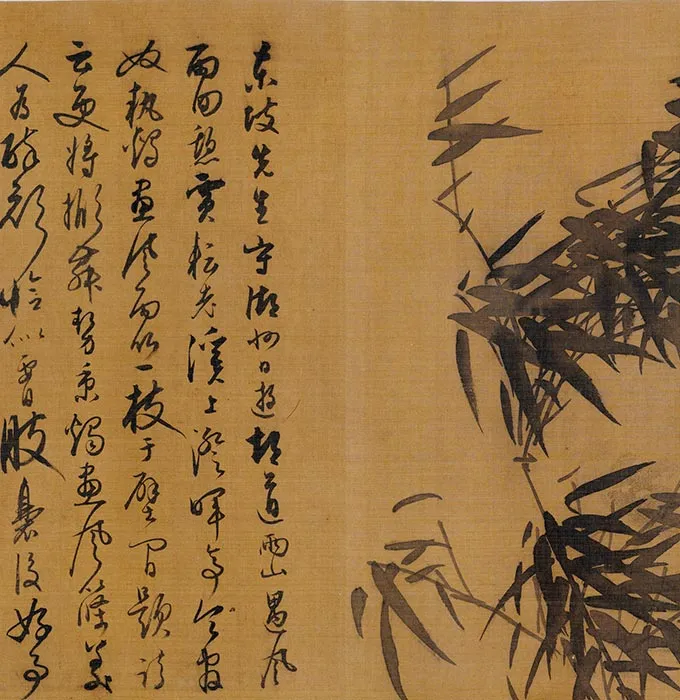 東坡先生守湖州日遊何道兩山遇風
雨回憩賈耘老溪上澄暉亭令官
奴執燭畫風雨竹一枝于壁間題詩
云更將掀舞勢秉燭畫風篠美
人為破顏恰似腰肢裊後好事